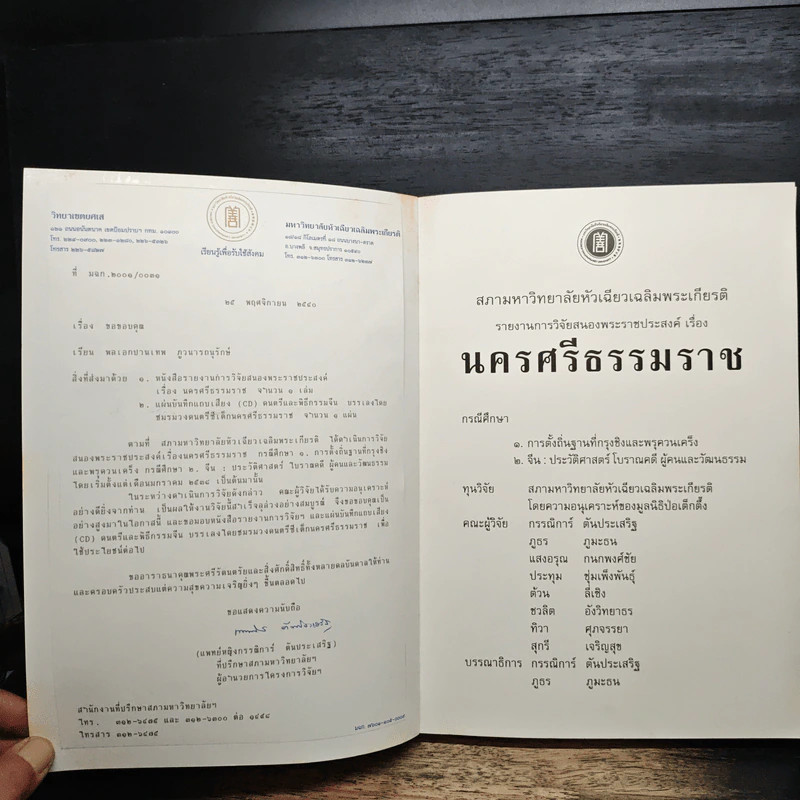 วิทยาเขตยศเส
๑๒๑ ถนนอนันตนาค เขตป้อมปราบฯ กทม. ๑๐๑๐๐
เรียนรู้เพื่อรับใช้สังคม
มหาวิทยาลัยหัวเฉียวเฉลิมพระเกียรติ
๑๘/๑๘ กิโลเมตรที่ ๑๘ ถนนบางนา-ตราด
อ.บางพลี จ.สมุทรปราการ ๑๐๕๔๐
ที่ มฉก.๒๐๐๑/๐๐๓๑
๒๕ พฤศจิกายน ๒๕๔๐
เรื่อง ขอขอบคุณ
เรียน พลเอกปานเทพ ภูวนารถนุรักษ์
สิ่งที่ส่งมาด้วย ๑. หนังสือรายงานการวิจัยสนองพระราชประสงค์
เรื่อง นครศรีธรรมราช จำนวน ๑ เล่ม
๒. แผ่นบันทึกแถบเสียง (CD) ดนตรีและพิธีกรรมจีน บรรเลงโดย
ชมรมวงดนตรีซีเต็กนครศรีธรรมราช จำนวน ๑ แผ่น
ตามที่ สภามหาวิทยาลัยหัวเฉียวเฉลิมพระเกียรติ ได้ดำเนินการวิจัย
สนองพระราชประสงค์เรื่องนครศรีธรรมราช กรณีศึกษา ๑. การตั้งถิ่นฐานที่กรุงชิง
และพรุควนเคร็ง กรณีศึกษา ๒. จีน : ประวัติศาสตร์ โบราณคดี ผู้คนและวัฒนธรรม
โดยเริ่มตั้งแต่เดือนมกราคม ๒๕๓๘ เป็นต้นมานั้น
ในระหว่างดำเนินการวิจัยดังกล่าว คณะผู้วิจัยได้รับความอนุเคราะห์
อย่างดียิ่งจากท่าน เป็นผลให้งานวิจัยนี้สำเร็จลุล่วงอย่างสมบูรณ์ จึงขอขอบคุณเป็น
อย่างสูงมาในโอกาสนี้ และขอมอบหนังสือรายงานการวิจัยฯ และแผ่นบันทึกแถบเสียง
(CD) ดนตรีและพิธีกรรมจีน บรรเลงโดยชมรมวงดนตรีซีเต็กนครศรีธรรมราช เพื่อ
ใช้ประโยชน์ต่อไป
ขออาราธนาคุณพระศรีรัตนตรัยและสิ่งศักดิ์สิทธิ์ทั้งหลายดลบันดาลให้ท่าน
และครอบครัวประสบแต่ความสุขความเจริญยิ่งๆ ขึ้นตลอดไป
ขอแสดงความนับถือ
(แพทย์หญิงกรรณิการ์ ตันประเสริฐ)
ที่ปรึกษาสภามหาวิทยาลัยฯ
ผู้อำนวยการโครงการวิจัยฯ
สำนักงานที่ปรึกษาสภามหาวิทยาลัยฯ
โทร. ๓๑๒-๖๔๗๕ และ ๓๑๒-๖๓๐๐ ต่อ ๑๔๕๘
โทรสาร ๓๑๒-๖๔๗๕
สภามหาวิทยาลัยหัวเฉียวเฉลิมพระเกียรติ
รายงานการวิจัยสนองพระราชประสงค์ เรื่อง
นครศรีธรรมราช
กรณีศึกษา
๑. การตั้งถิ่นฐานที่กรุงชิงและพรุควนเคร็ง
๒. จีน : ประวัติศาสตร์ โบราณคดี ผู้คนและวัฒนธรรม
ทุนวิจัย สภามหาวิทยาลัยหัวเฉียวเฉลิมพระเกียรติ
โดยความอนุเคราะห์ของมูลนิธิป่อเต็กตึ๊ง
คณะผู้วิจัย กรรณิการ์ ตันประเสริฐ
ภูธร ภูมะธน
แสงอรุณ กนกพงศ์ชัย
ประทุม ชุ่มเพ็งพันธุ์
ต้วน ลี่เซิง
ชวลิต อังวิทยาธร
ทิวา ศุภจรรยา
สุกรี เจริญสุข
บรรณาธิการ กรรณิการ์ ตันประเสริฐ
ภูธร ภูมะธน